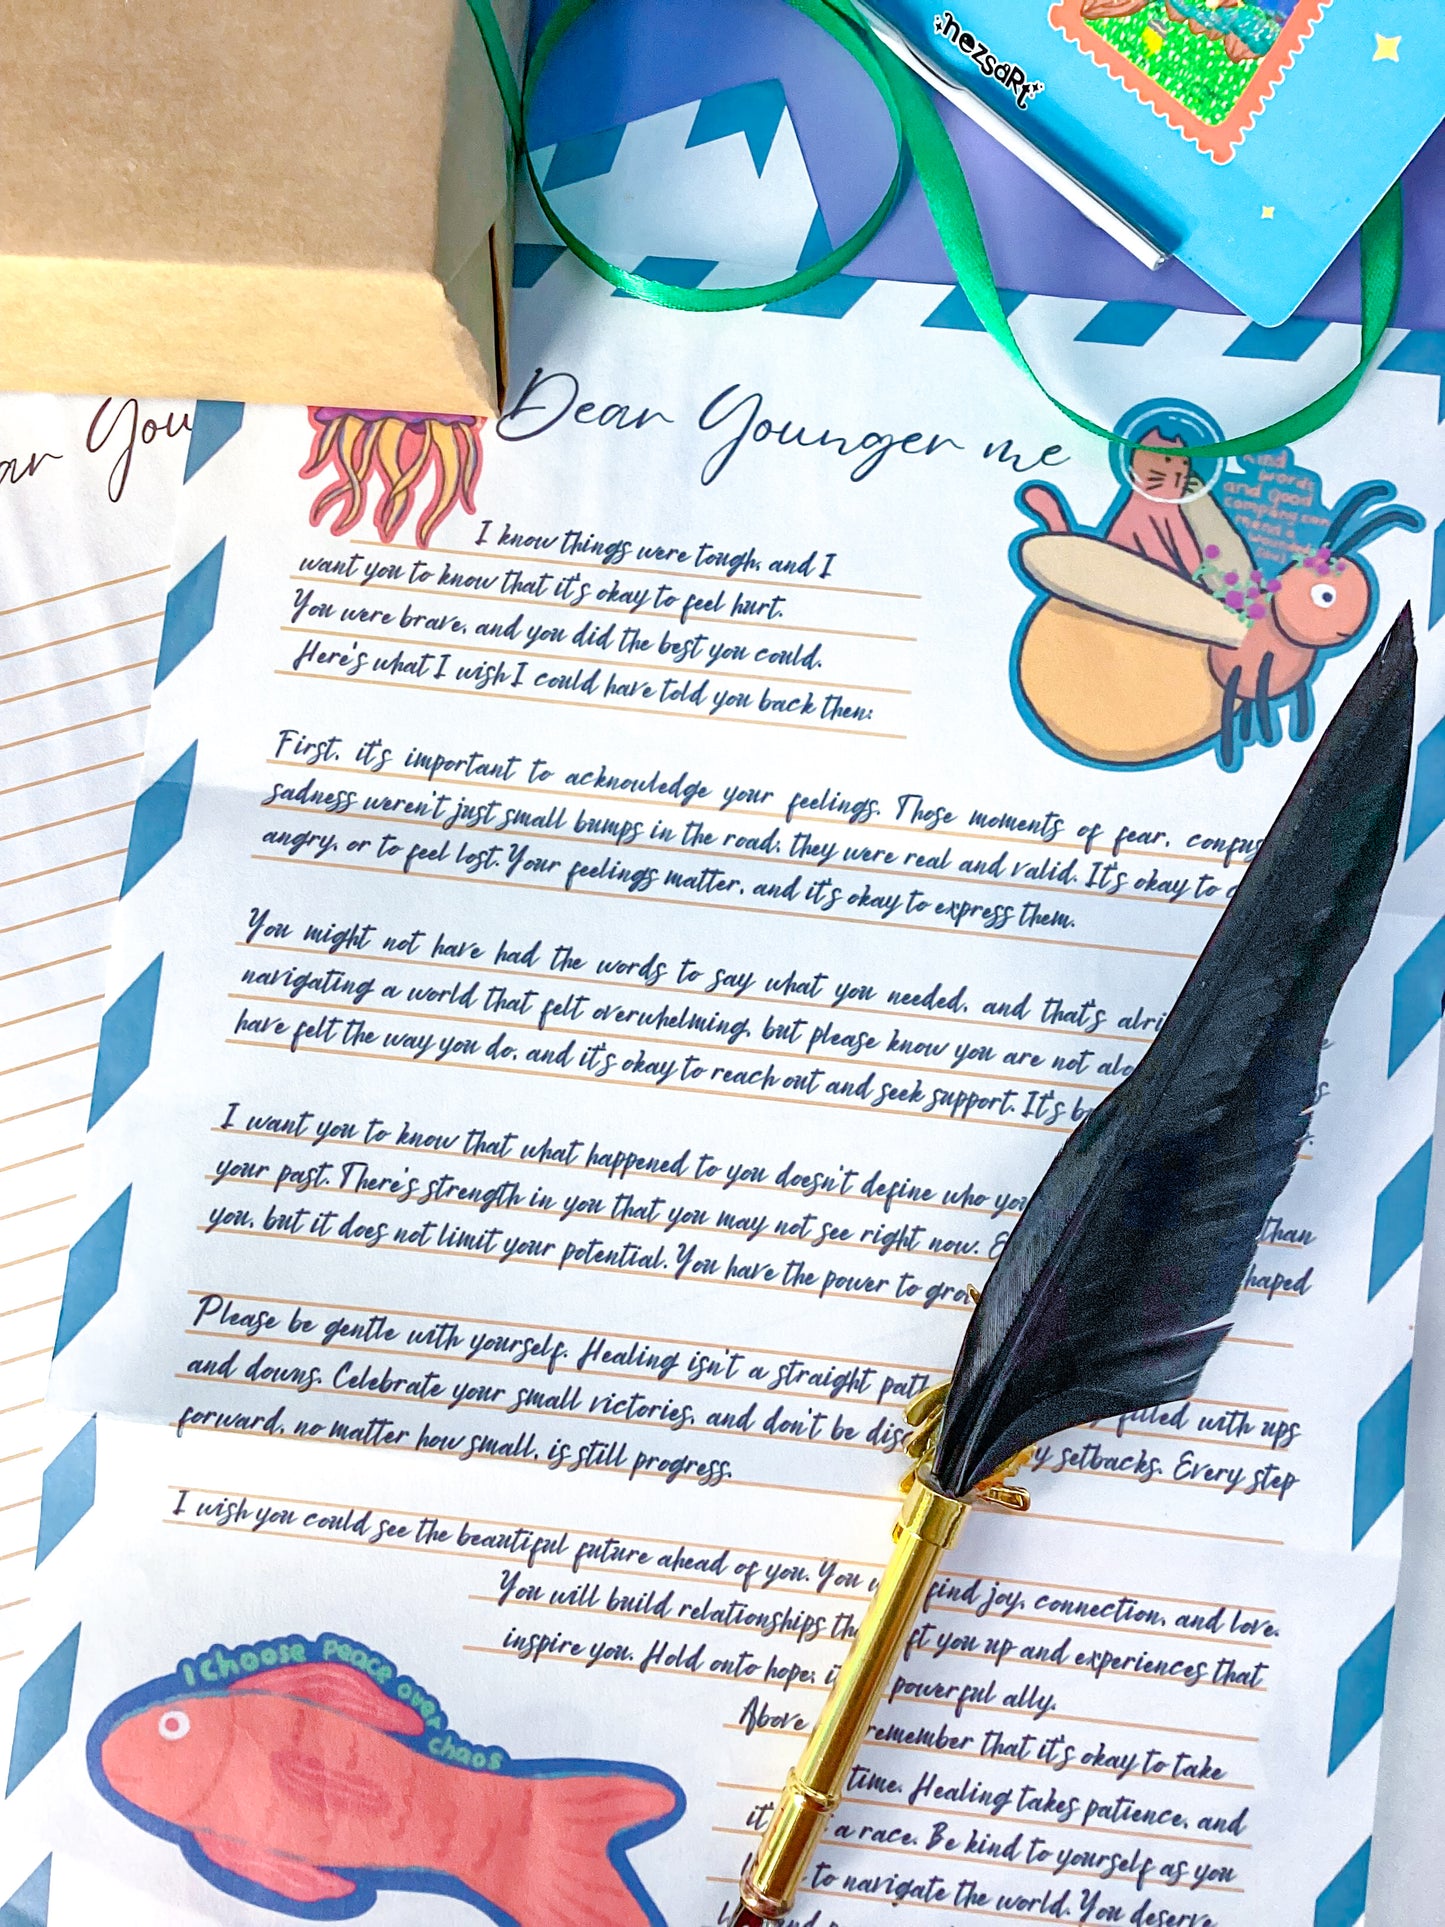 nezsaRt
ar You
Dear Younger me
Kind
words
and good
company can
mend a
wounded
soul
I know things were tough, and I
want you to know that it's okay to feel hurt.
You were brave, and you did the best you could.
Here's what I wish I could have told you back then:
First, it's important to acknowledge your feelings. Those moments of fear, confus
sadness weren't just small bumps in the road; they were real and valid. It's okay to
angry, or to feel lost. Your feelings matter, and it's okay to express them.
You might not have had the words to say what you needed, and that's alri
navigating a world that felt overwhelming, but please know you are not alo
have felt the way you do, and it's okay to reach out and seek support. It's b
I want you to know that what happened to you doesn't define who you than
your past. There's strength in you that you may not see right now. haped
you, but it does not limit your potential. You have the power to gro
Please be gentle with yourself. Healing isn't a straight path filled with ups
and downs. Celebrate your small victories, and don't be disc y setbacks. Every step
forward, no matter how small, is still progress.
I wish you could see the beautiful future ahead of you. You find joy, connection, and love.
You will build relationships tha ft you up and experiences that
inspire you. Hold onto hope; it powerful ally.
Above remember that it's okay to take
time. Healing takes patience, and
it' a race. Be kind to yourself as you
to navigate the world. You deserve
I choose peace over chaos